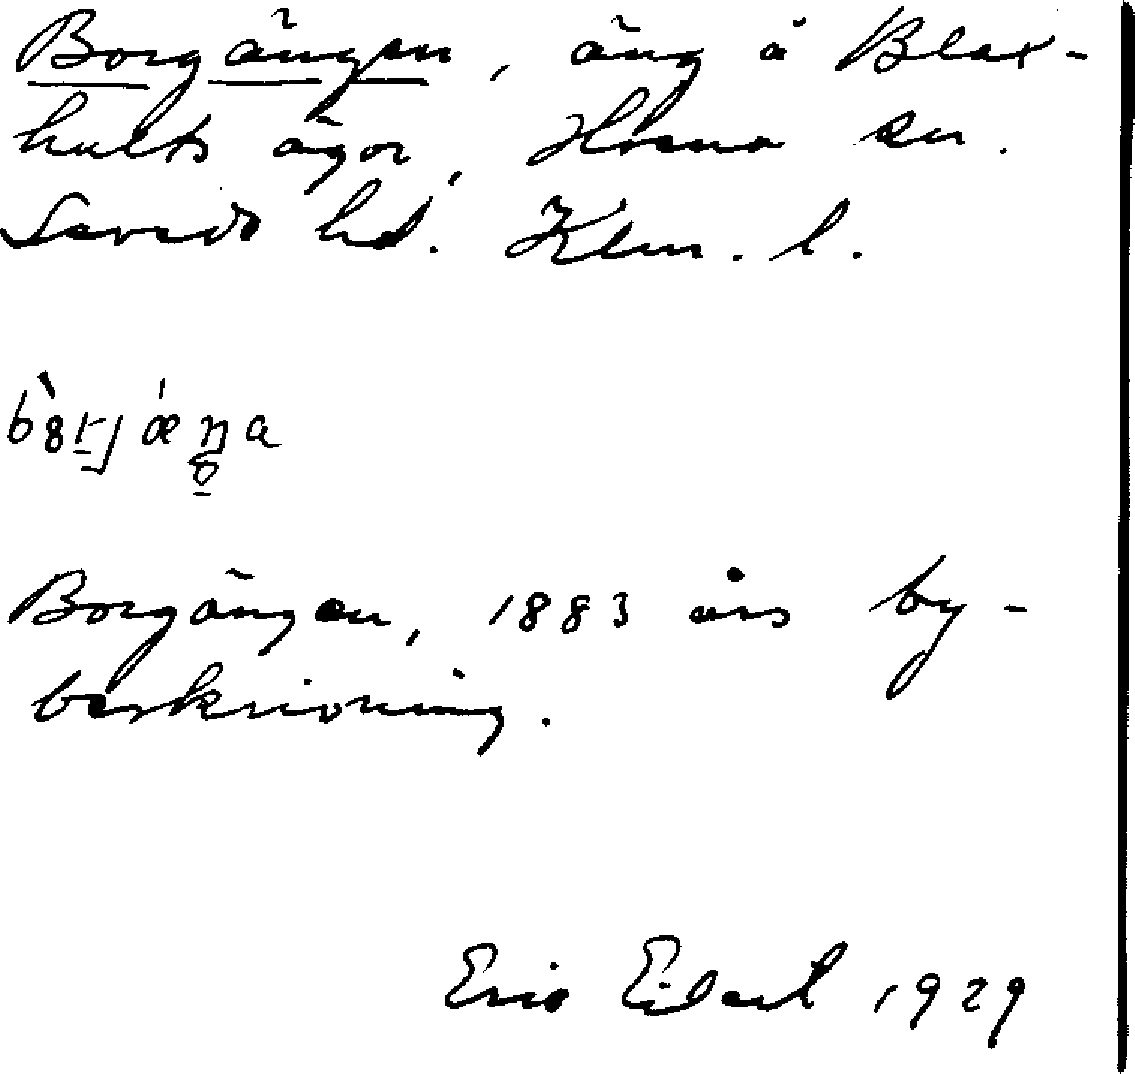 Borgängen, äng å Blax-
hults ägor, Horna sn.
Sevede hd. Klm. l.
Borgängen, 1883 års by-
beskrivning.
Eric Edart 1929